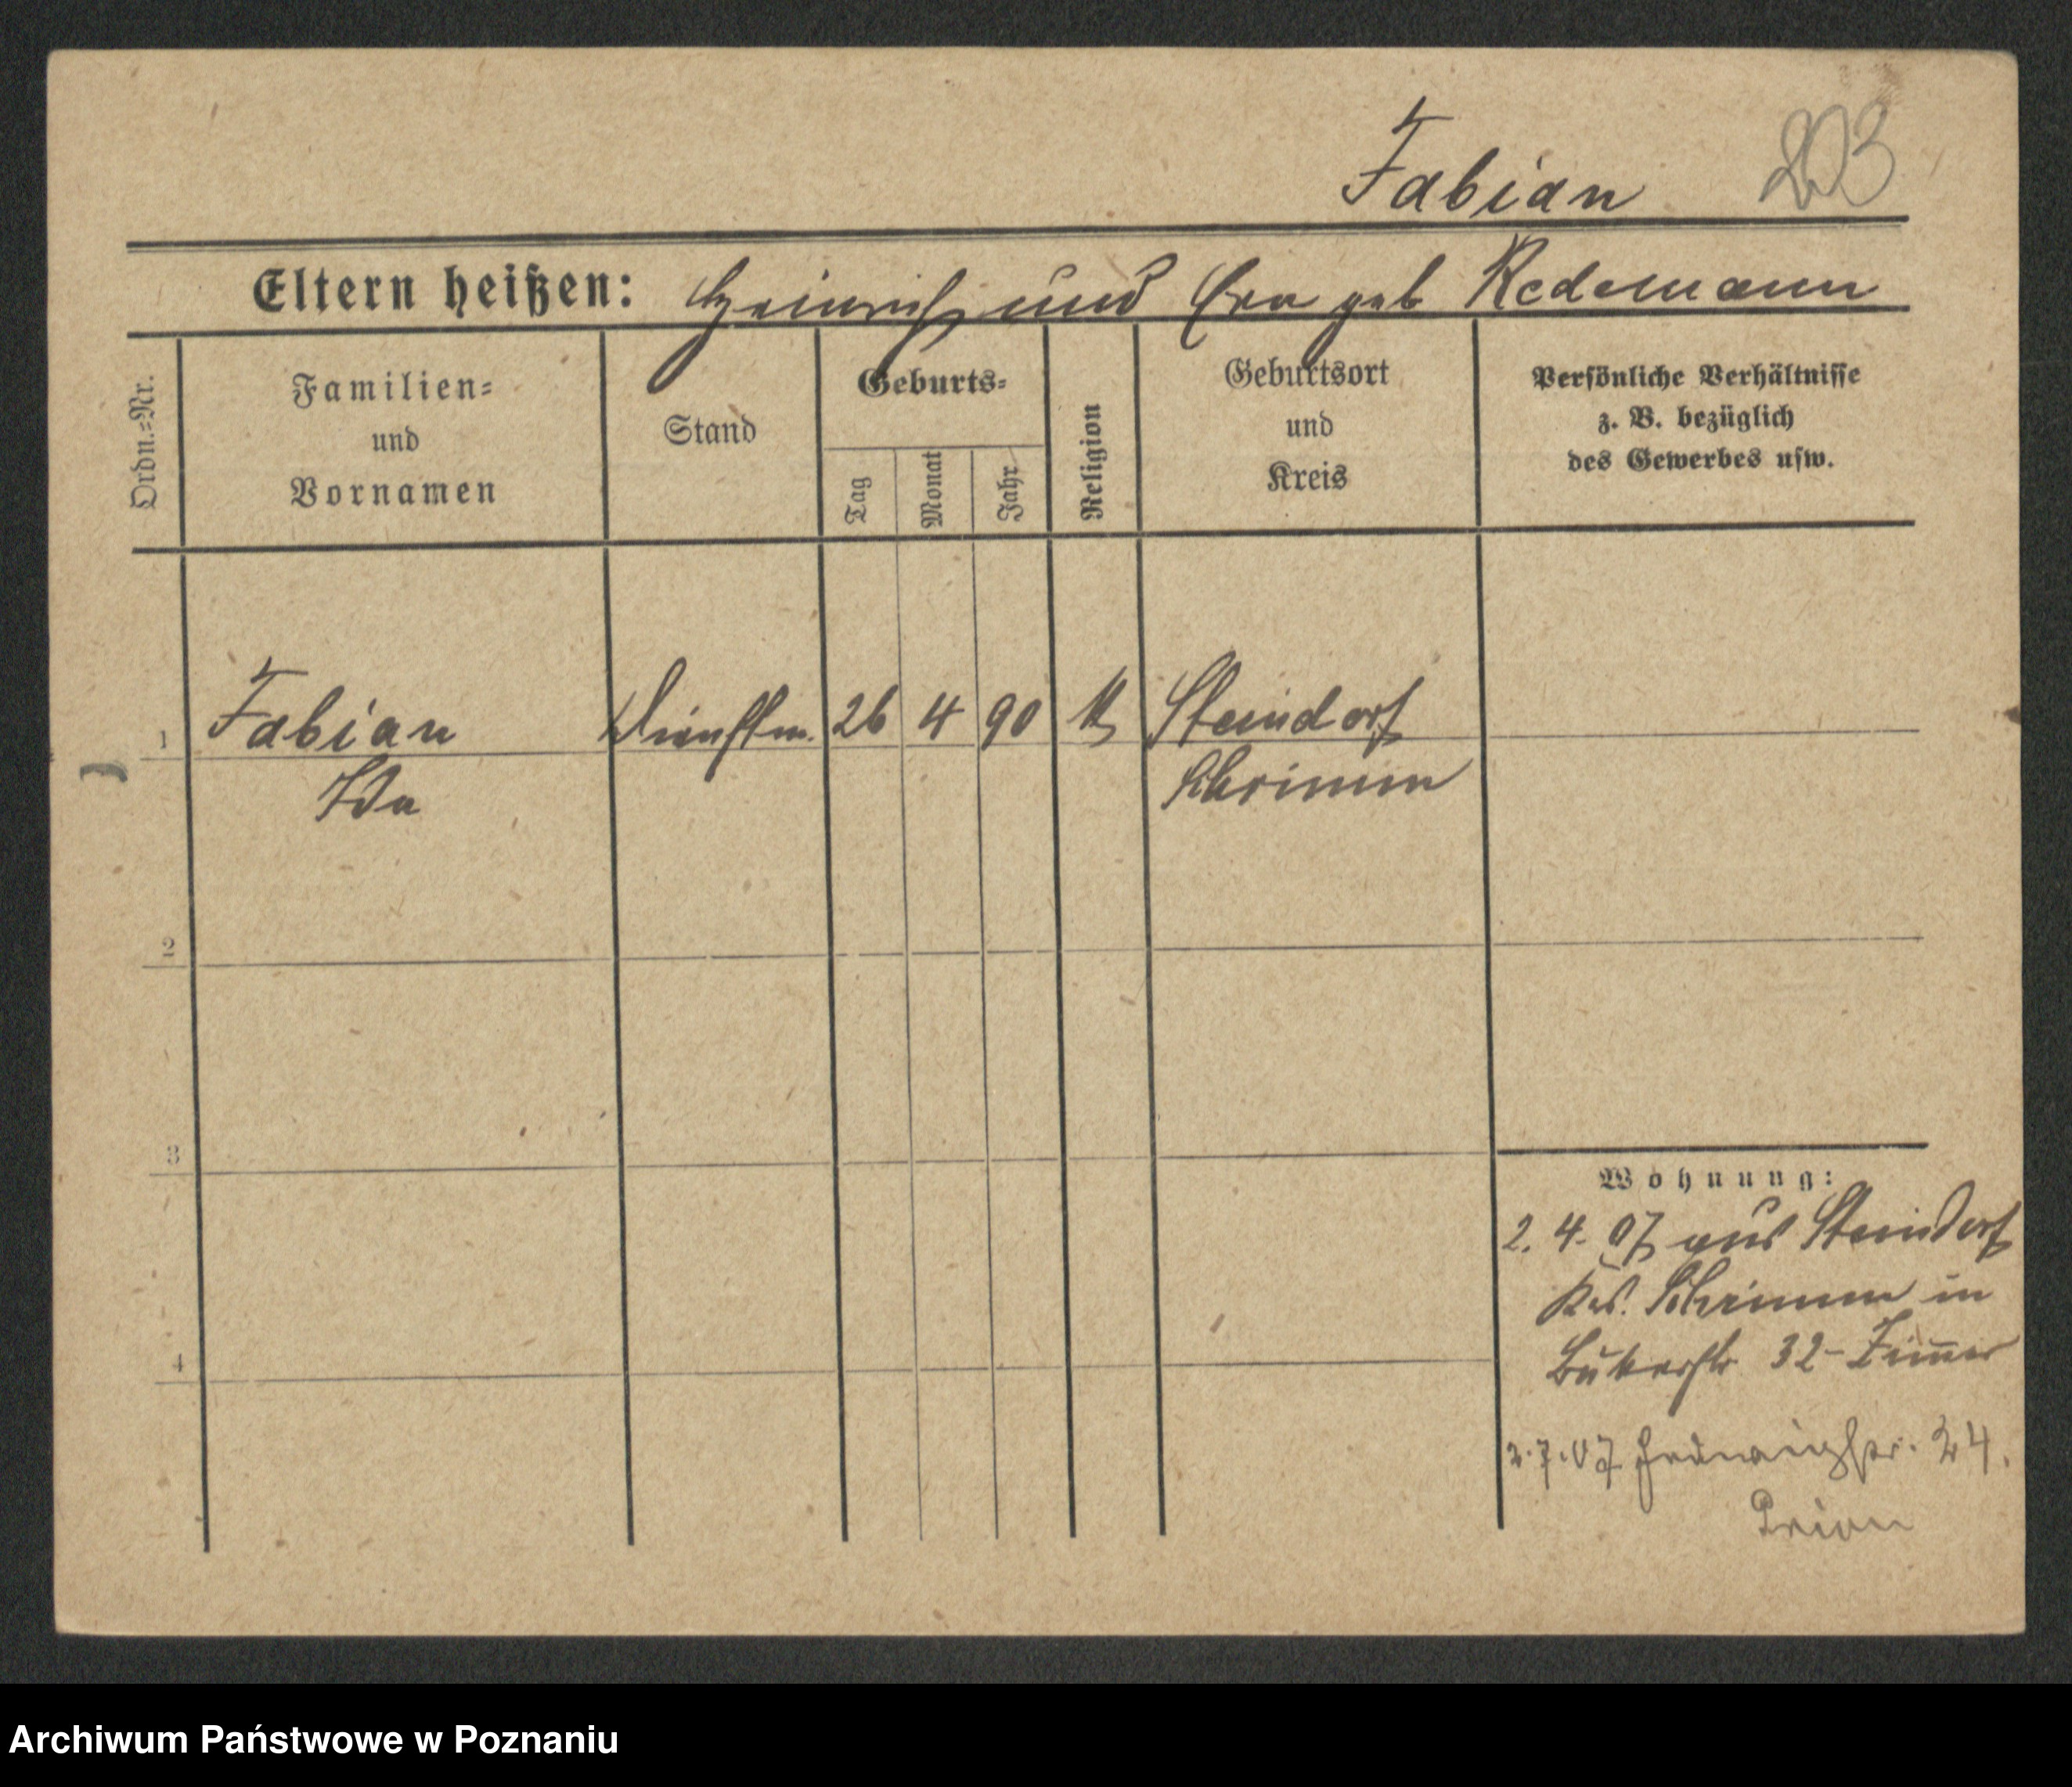 Fabian 203
Eltern heißen: Heinrich und Eva geb Redemann
Ordn.=Nr.
Familien=
und
Vornamen
Stand
Geburts=
Tag
Monat
Jahr
Religion
Geburtsort
und
Kreis
Persönliche Verhältnisse
z. B. bezüglich
des Gewerbes usw.
1 Fabian Dienstm. 26 4 90 K Steindorf
Ida Schrimm
2
3
4
Wohnung:
2. 4. 07 aus Steindorf
Krs. Schrimm in
Bukerstr 32 - Zimmer
2.7.07 Hedwigstr. 24.
Archiwum Państwowe w Poznaniu